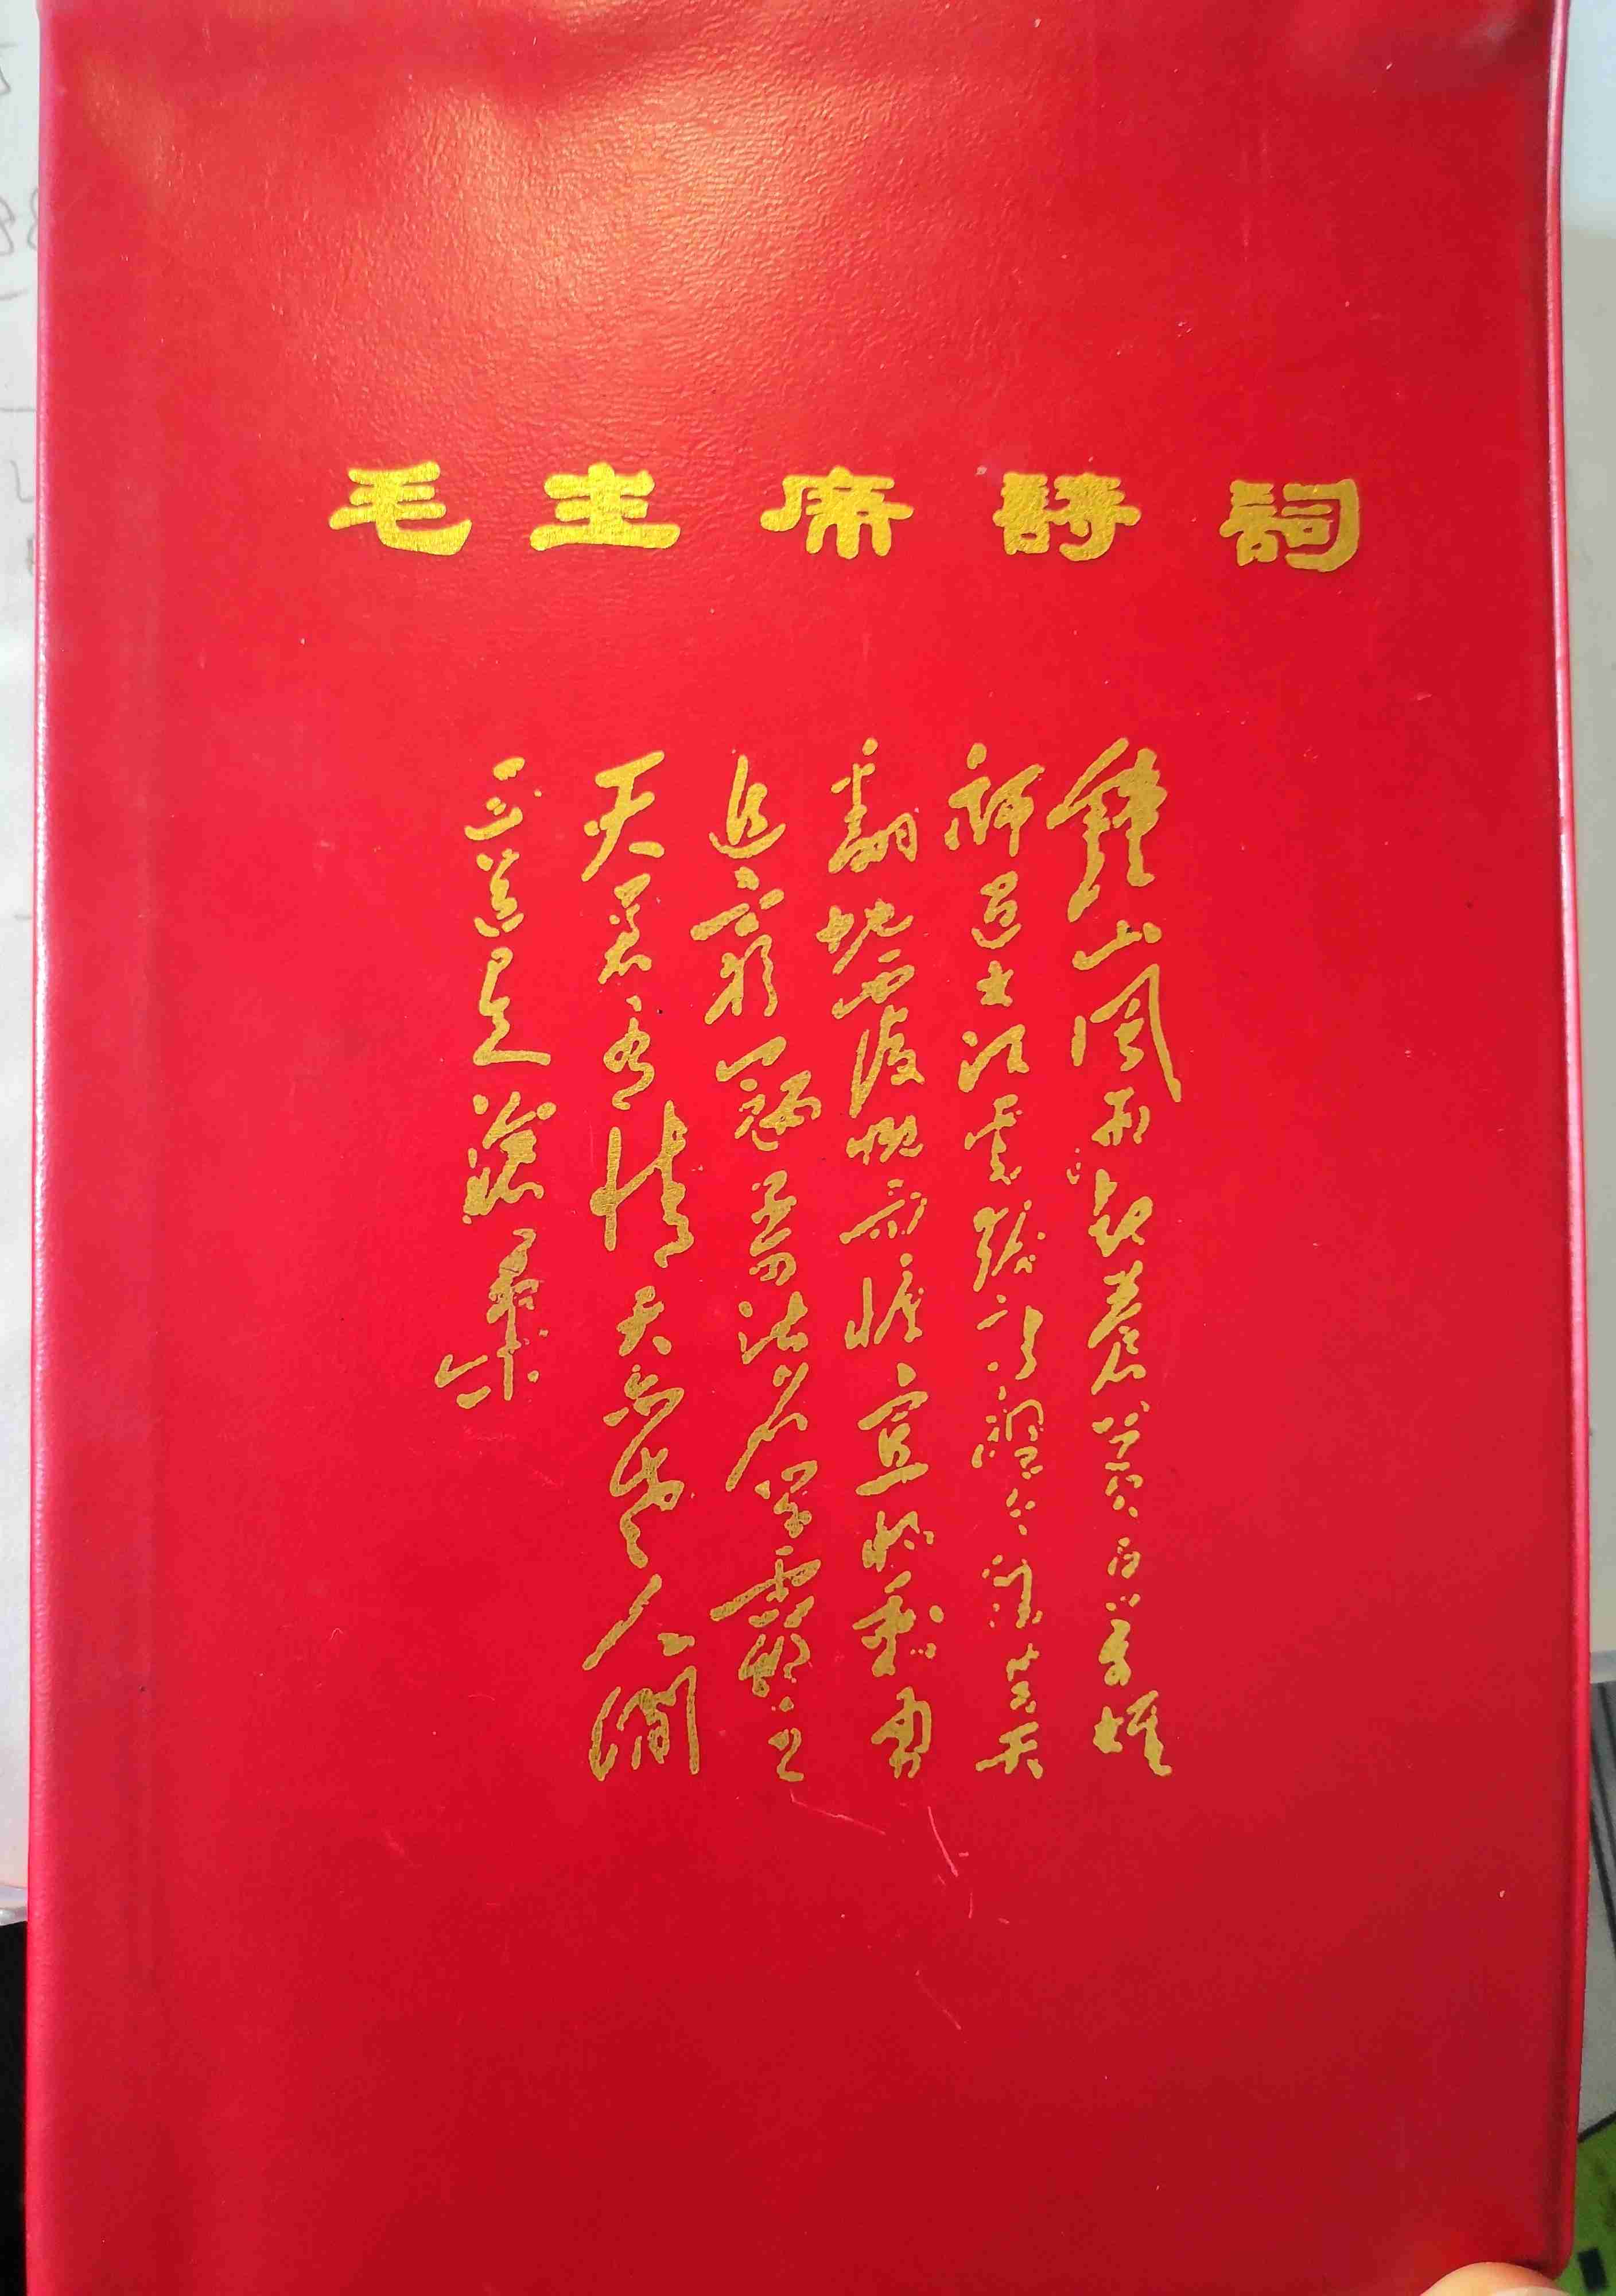 毛主席詩詞
鍾山風雨起蒼黄百万雄
師過大江虎踞龍盤今勝昔天
翻地覆慨而慷宜將剩勇
追窮寇不可沽名學霸王
天若有情天亦老人間
正道是滄桑